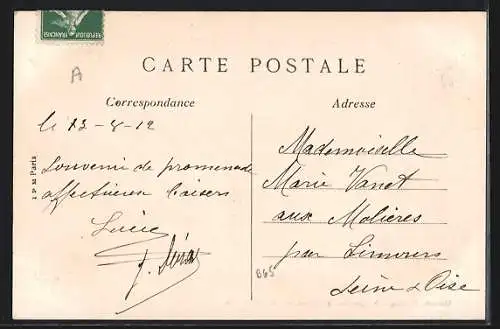 REPUBLIQUE FRANÇAISE
A
CARTE POSTALE
Correspondance
Adresse
le 13-8-12
Souvenir de promenade
affectueux baisers
Lucie
Mademoiselle
Marie Vanot
aux Molières
par Limours
Seine & Oise
865
I P M Paris